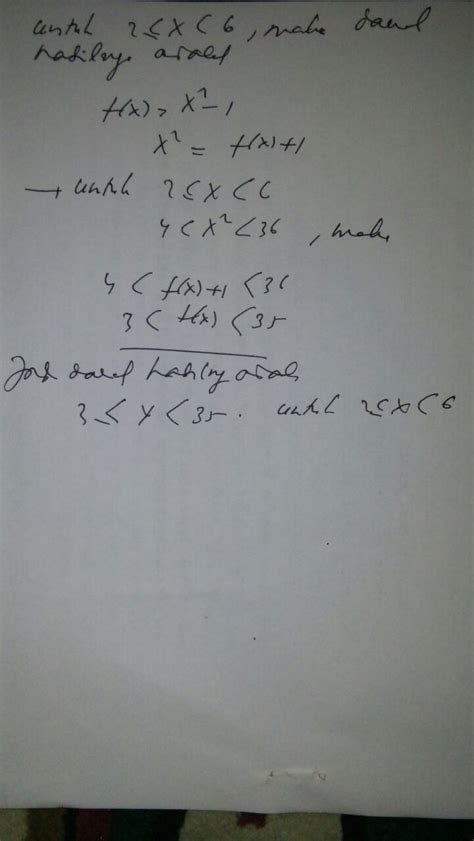 untuk 2 ≤ x < 6, maka daerah
hasilnya adalah
f(x) = x² - 1
x² = f(x) + 1
→ untuk 2 ≤ x < 6
4 < x² < 36, maka
4 < f(x) + 1 < 36
3 < f(x) < 35
Jadi daerah hasilnya adalah
3 ≤ y < 35. untuk 2 ≤ x < 6